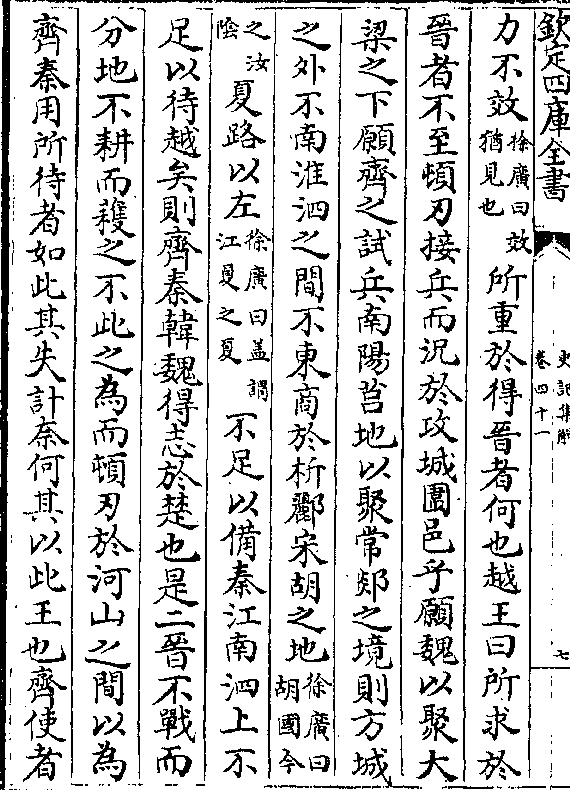 欽定四庫全書
史記集解
卷四十一
七
力不效徐廣曰效猶見也所重於得晉者何也越王曰所求於
晉者不至頓刃接兵而況於攻城圍邑乎願魏以聚大
梁之下願齊之試兵南陽莒地以聚常郯之境則方城
之外不南淮泗之間不東商於析酈宋胡之地徐廣曰胡國今
之汝陰夏路以左徐廣曰盖謂江夏之夏不足以備秦江南泗上不
足以待越矣則齊秦韓魏得志於楚也是二晉不戰而
分地不耕而穫之不此之為而頓刃於河山之間以為
齊秦用所待者如此其失計奈何其以此王也齊使者